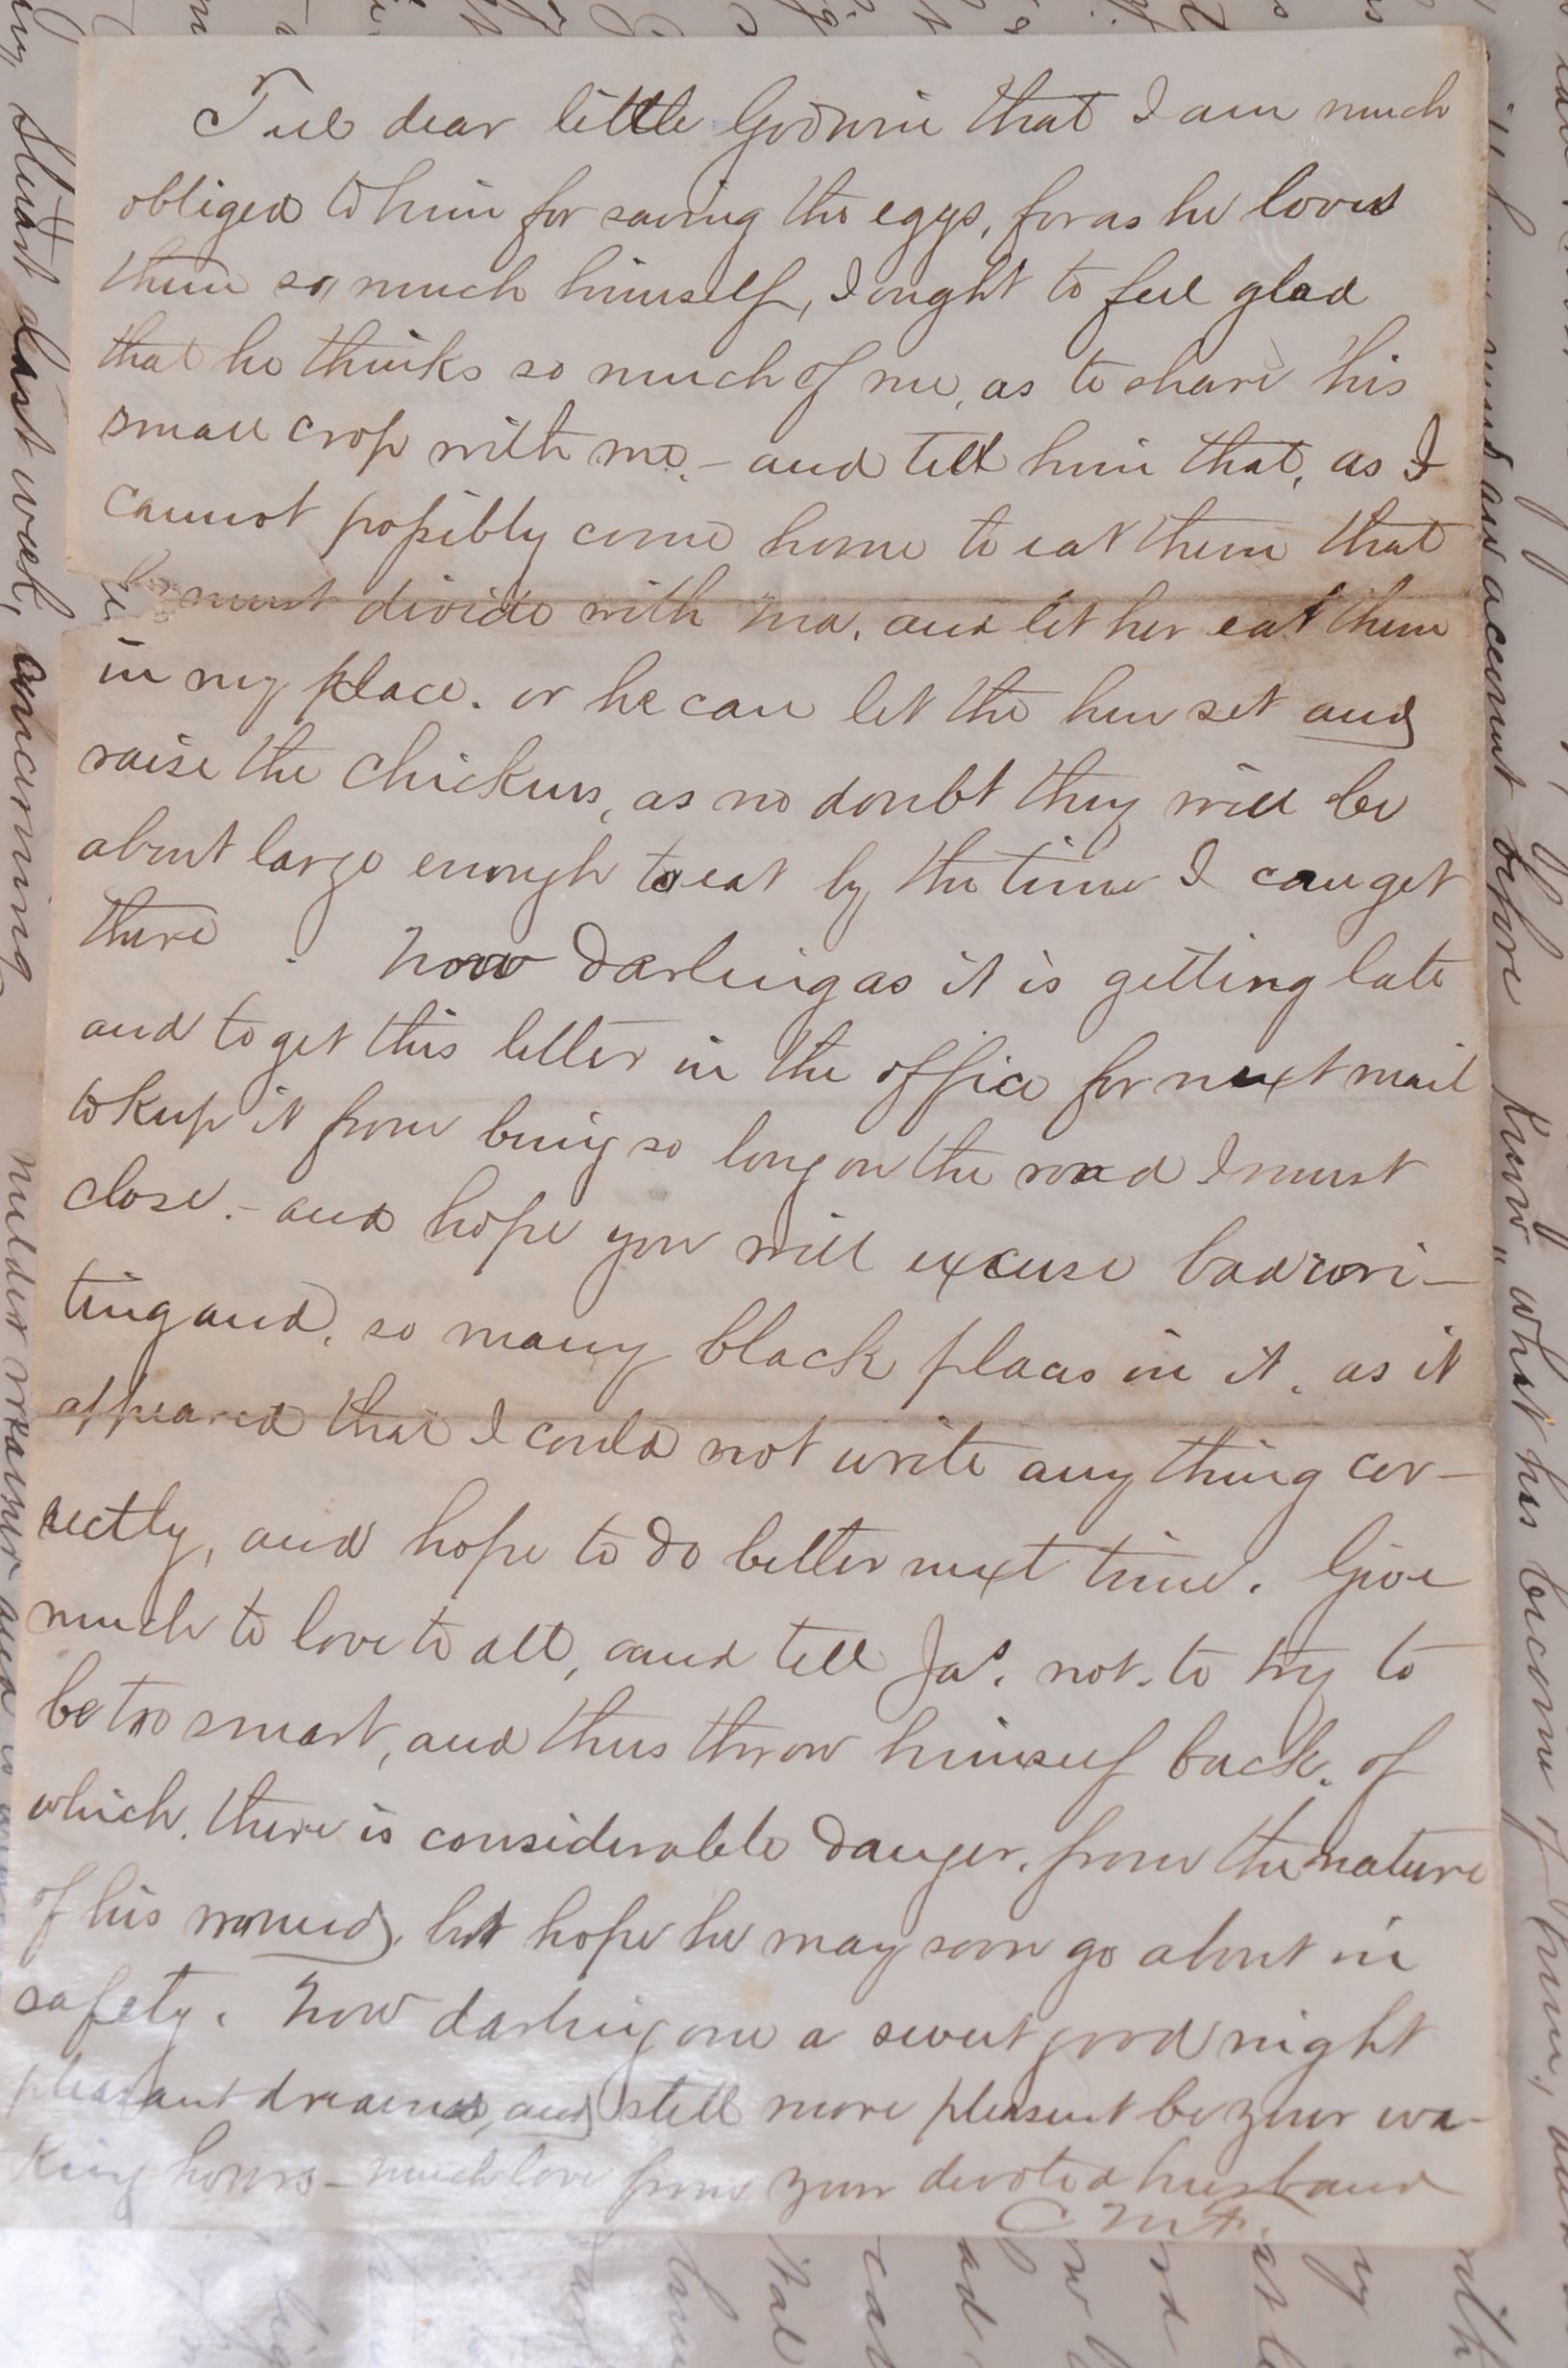 Tell dear little Godwin that I am much
obliged to him for saving the eggs, for as he loves
them so, much himself, I ought to feel glad
that he thinks so much of me, as to share his
small crop with me, – and tell him that, as I
cannot possibly come home to eat them that
he must divide with Ma, and let her eat them
in my place. or he can let the hen set and
raise the chickens, as no doubt they will be
about large enough to eat by the time I can get
there. Now Darling as it is getting late
and to get this letter in the office for next mail
to keep it from being so long on the road I must
close. – and hope you will excuse bad wri–
ting and, so many black places in it, as it
appeared that I could not write any thing cor–
rectly, and hope to do better next time. Give
much to love to all, and tell Jas. not. to try to
be too smart, and thus throw himself back. of
which, there is considerable danger, from the nature
of his wound, but hope he may soon go about in
safety. Now darling one a sweet good night
pleasant dreams, and still more pleasent be your wa–
king hours – much love from your devoted husband
last week, concerning
an account before know, what has become of him,